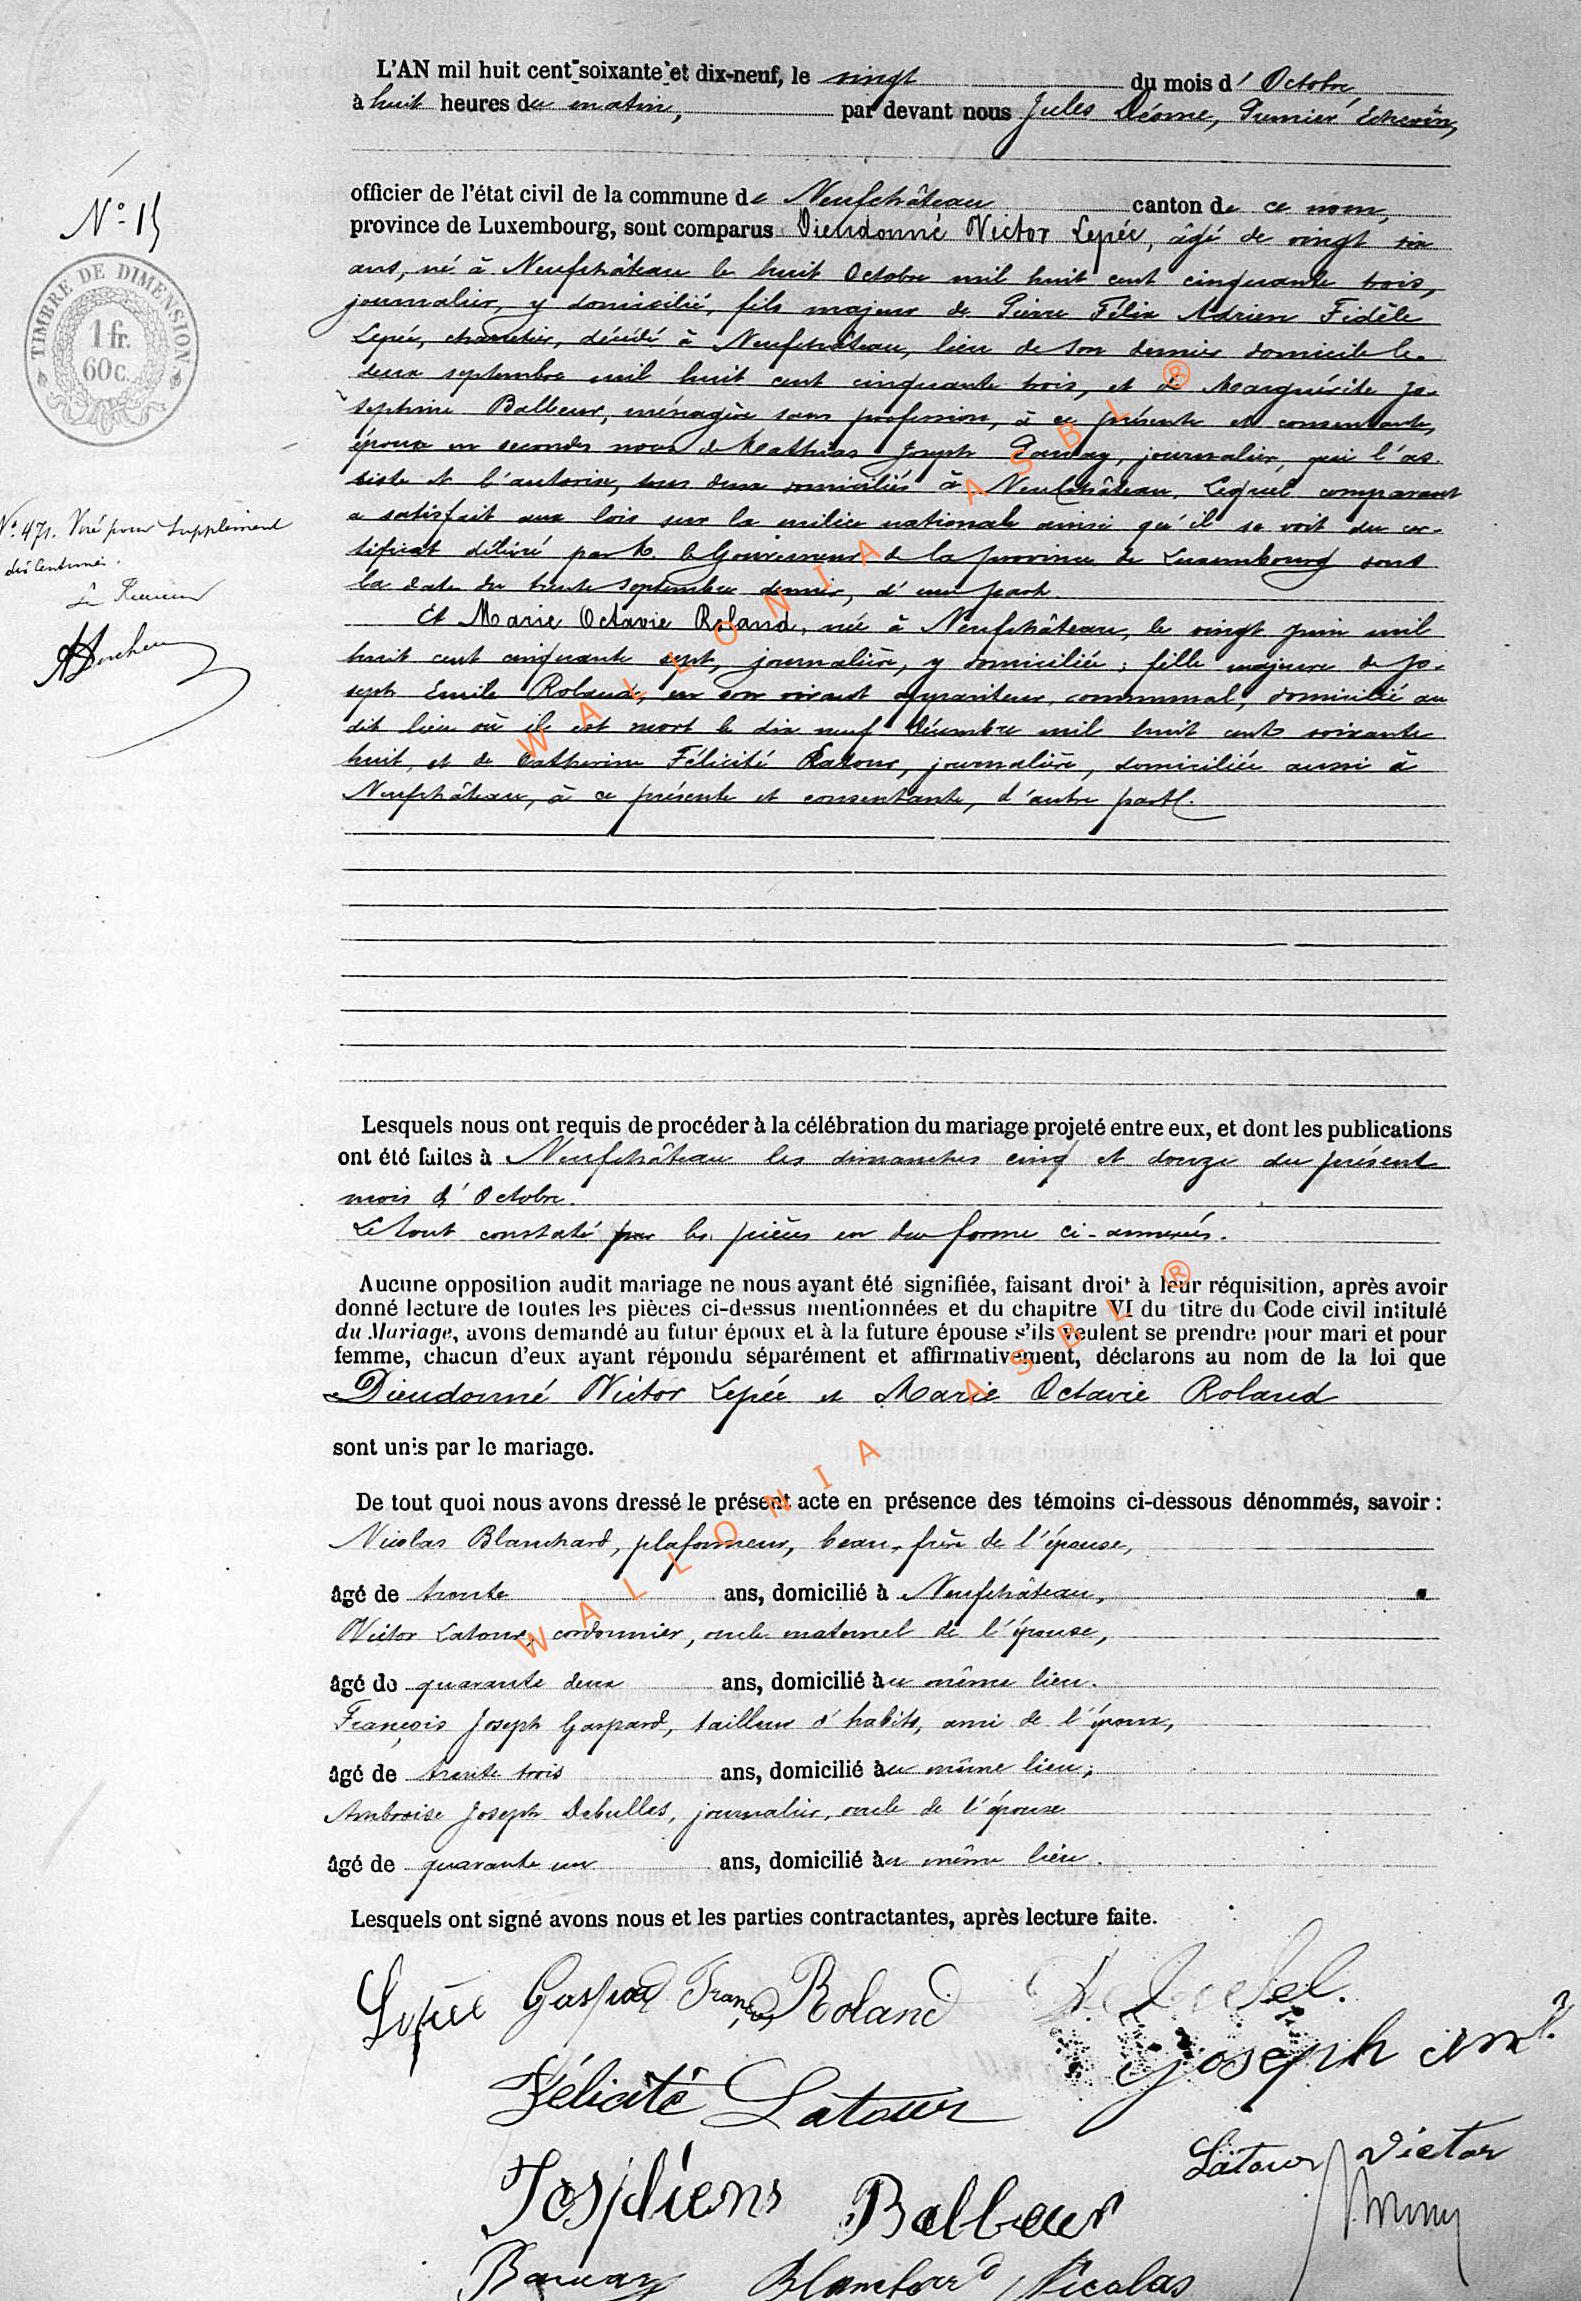 L'AN mil huit cent soixante et dix-neuf, le vingt du mois d'Octobre
à huit heures du matin, par devant nous Jules Déome, Premier Echevin,
officier de l'état civil de la commune de Neufchâteau canton de ce nom,
N° 15
province de Luxembourg, sont comparus Dieudonné Victor Lepée, âgé de vingt six
ans, né à Neufchâteau le huit Octobre mil huit cent cinquante trois,
TIMBRE DE DIMENSION
1 fr.
60 c.
journalier, y domicilié, fils majeur de Pierre Félix Adrien Fidèle
Lepée, charretier, décédé à Neufchâteau, lieu de son dernier domicile le
deux septembre mil huit cent cinquante trois, et de Marguérite Jo-
séphine Balbeur, ménagère sans profession, à ce présente et consentante,
épouse en secondes noces de Mathias Joseph journalier, qui l'as-
siste et l'autorise, tous deux domiciliés à Neufchâteau. Lequel comparant
a satisfait aux lois sur la milice nationale ainsi qu'il se voit du cer-
tificat délivré par M. le Gouverneur de la province de Luxembourg sous
la date du trente septembre dernier, d'une part.
N° 471. Visé pour supplément
dix centimes.
Le Receveur
Et Marie Octavie Roland, née à Neufchâteau, le vingt juin mil
huit cent cinquante sept, journalière, y domiciliée; fille majeure de Jo-
seph Emile Roland, en son vivant appariteur communal, domicilié au
dit lieu où il est mort le dix neuf Décembre mil huit cent soixante
huit, et de Catherine Félicité Latour, journalière, domiciliée aussi à
Neufchâteau, à ce présente et consentante, d'autre part.
WALLONIA ASBL ®
Lesquels nous ont requis de procéder à la célébration du mariage projeté entre eux, et dont les publications
ont été faites à Neufchâteau les dimanches cinq et douze du présent
mois d'Octobre.
Le tout constaté par les pièces en due forme ci-annexées.
Aucune opposition audit mariage ne nous ayant été signifiée, faisant droit à leur réquisition, après avoir
donné lecture de toutes les pièces ci-dessus mentionnées et du chapitre VI du titre du Code civil intitulé
du Mariage, avons demandé au futur époux et à la future épouse s'ils veulent se prendre pour mari et pour
femme, chacun d'eux ayant répondu séparément et affirmativement, déclarons au nom de la loi que
Dieudonné Victor Lepée et Marie Octavie Roland
sont unis par le mariage.
De tout quoi nous avons dressé le présent acte en présence des témoins ci-dessous dénommés, savoir :
Nicolas Blanchard, plafonneur, beau-frère de l'épouse,
âgé de trente ans, domicilié à Neufchâteau,
Victor Latour, cordonnier, oncle maternel de l'épouse,
âgé de quarante deux ans, domicilié au même lieu.
François Joseph Gaspard, tailleur d'habits, ami de l'époux,
âgé de trente trois ans, domicilié au même lieu;
Ambroise Joseph journalier, oncle de l'épouse
âgé de quarante un ans, domicilié au même lieu.
Lesquels ont signé avons nous et les parties contractantes, après lecture faite.
WALLONIA ASBL ®
Lepée Gaspard François Roland
Joseph
Félicité Latour
Latour Victor
Balbeur
Blanchard Nicolas